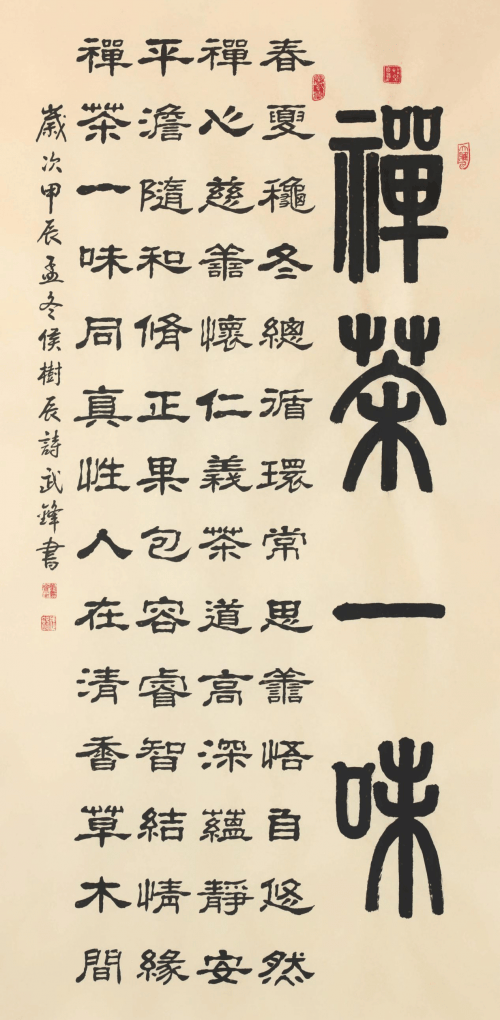 禪茶一味
春夏穐冬總循環常思譱悟自悠然
禪心慈譱懷仁義茶道高深蘊靜安
平澹隨和脩正果包容睿智結情緣
禪茶一味同真性人在清香草木間
歲次甲辰孟冬侯樹辰詩武鋒書